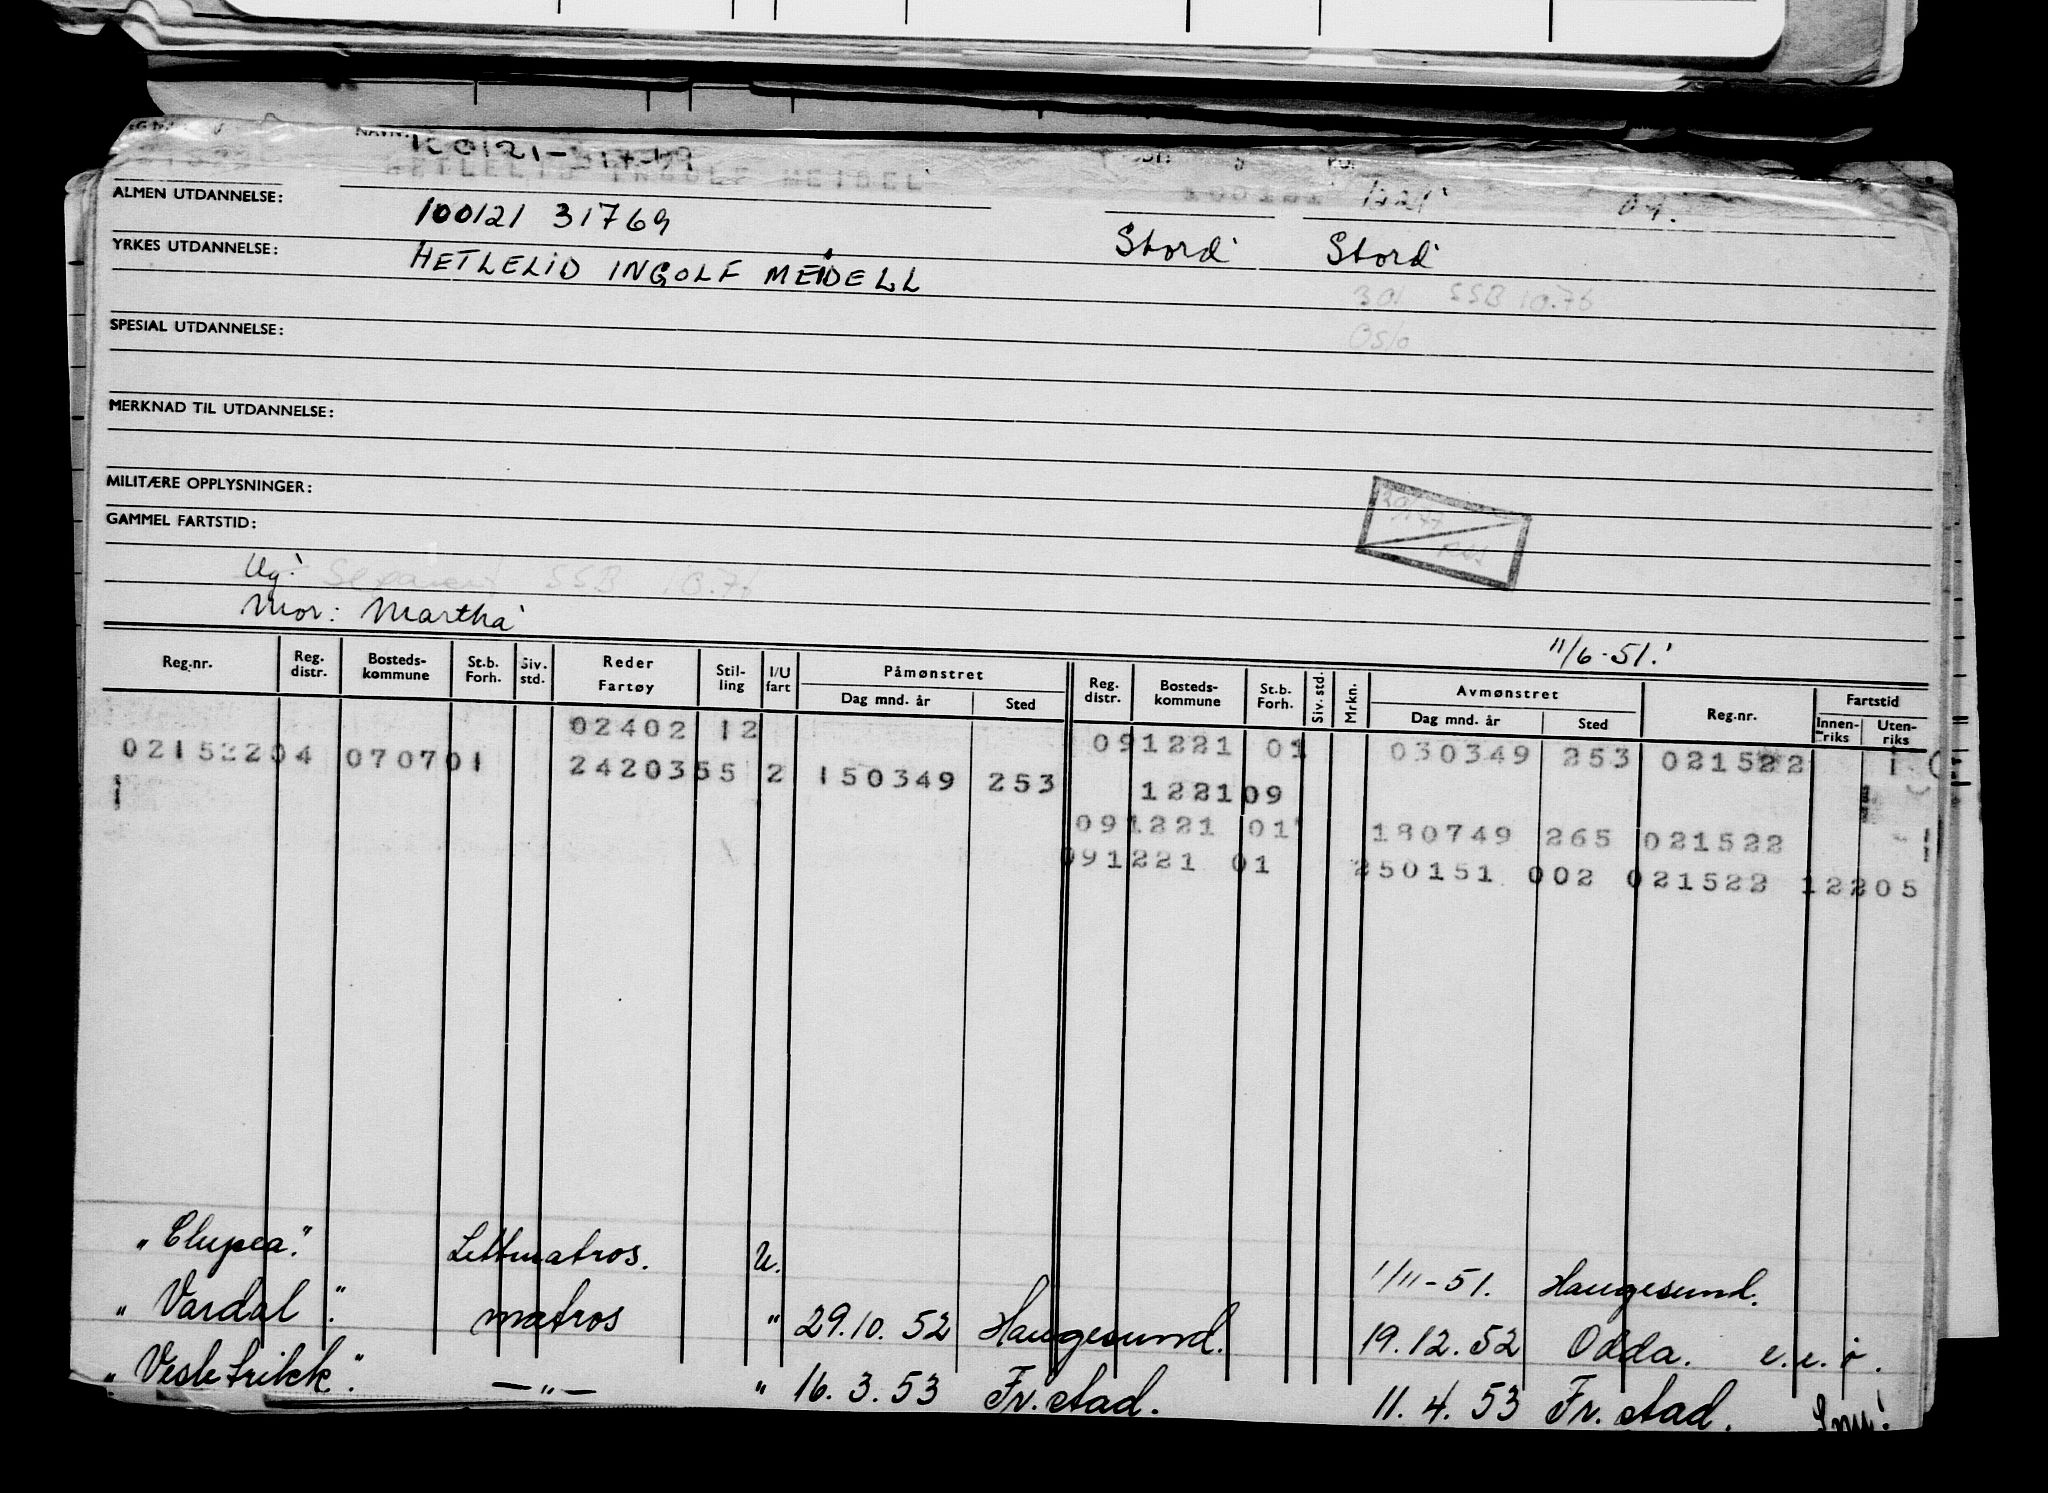 NAVN:
HETLELID INGOLF MEIDEL
ALMEN UTDANNELSE: 100121 31769
YRKES UTDANNELSE: HETLELID INGOLF MEIDELL Stord Stord
301 SSB 10.76
Oslo
SPESIAL UTDANNELSE:
MERKNAD TIL UTDANNELSE:
MILITÆRE OPPLYSNINGER:
GAMMEL FARTSTID:
Ug. Separert SSB 10.76
Mor: Martha
11/6-51.
Reg.nr. Reg. distr. Bosteds-kommune St.b. Forh. Siv. std. Reder Fartøy Stil-ling I/U fart Påmønstret Dag mnd. år Sted Reg. distr. Bosteds-kommune St.b. Forh. Siv. std. Mrkn. Avmønstret Dag mnd. år Sted Reg.nr. Fartstid Innen-riks Uten-riks
02402 12 091221 01 030349 253 021522
02152204 070701 2420355 2 150349 253 122109
091221 01 180749 265 021522
091221 01 250151 002 021522 12205
"Clupea". Lettmatros. U. 1/11-51. Haugesund.
"Vardal". matros " 29.10.52 Haugesund. 19.12.52 Odda. e.e.ö.
"Vesletrikk". —"— " 16.3.53 Fr.stad. 11.4.53 Fr.stad.